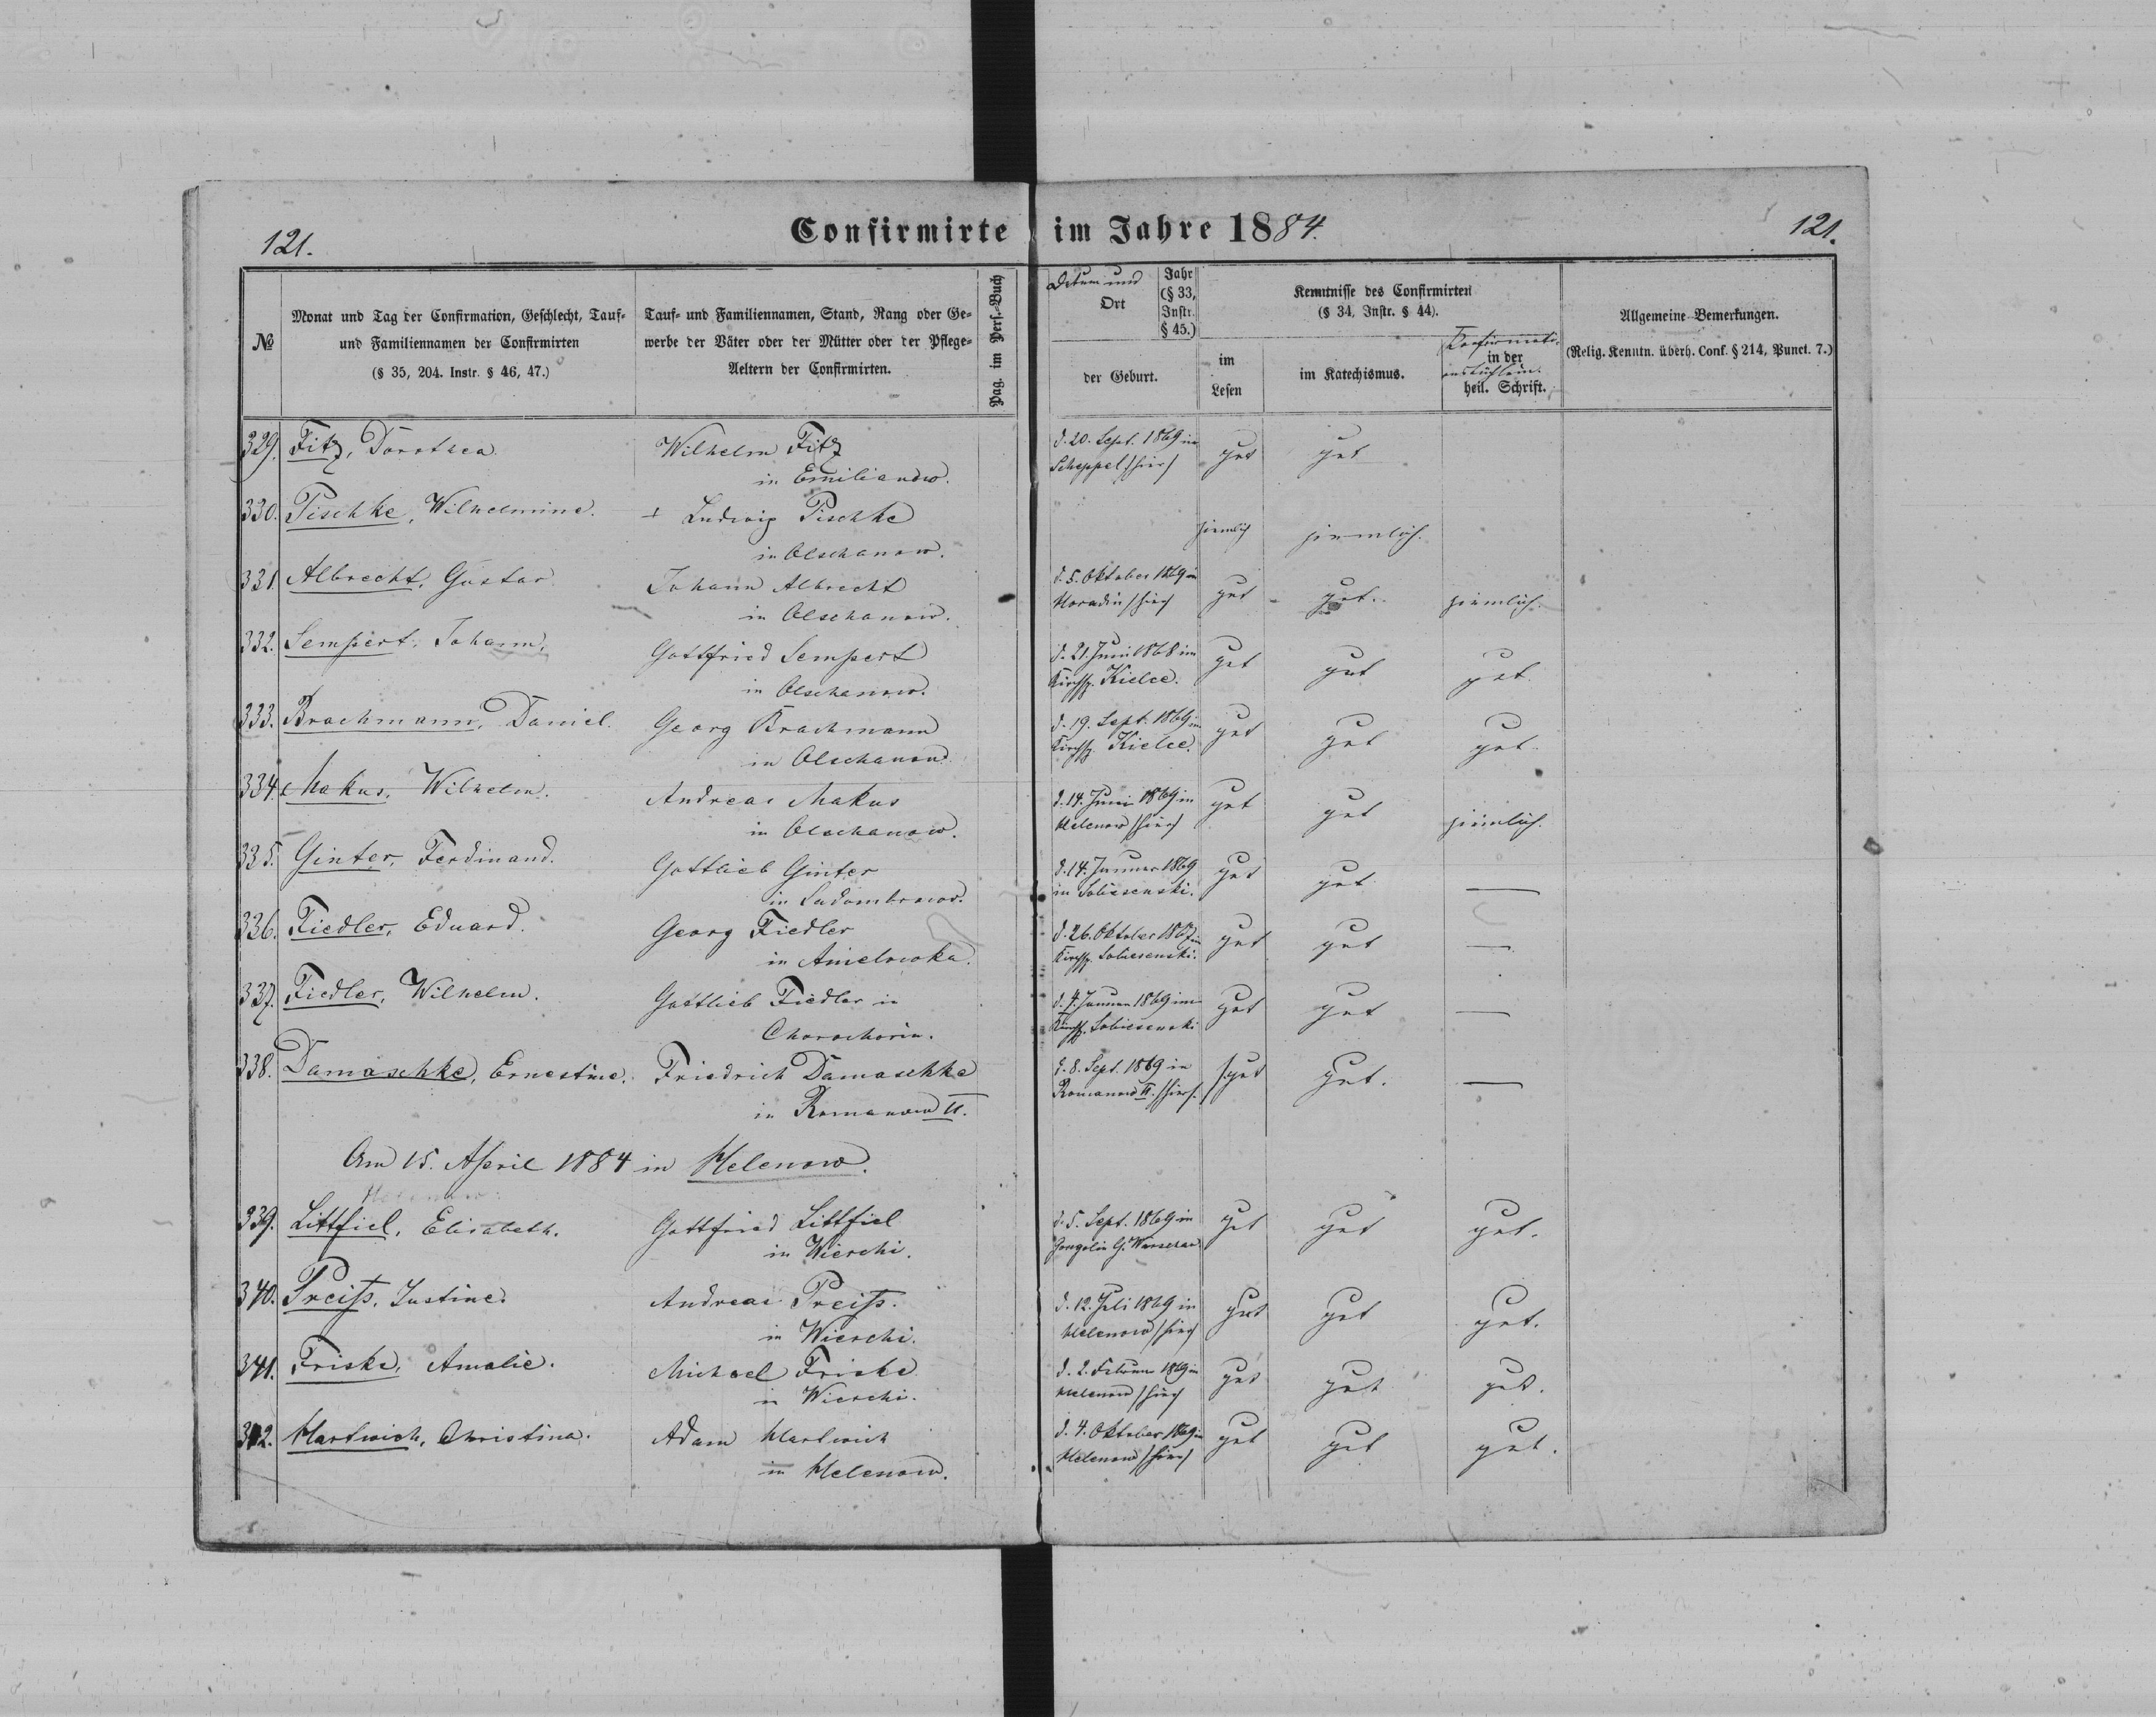 121.
Confirmirte im Jahre 1884.
121.
№
Monat und Tag der Confirmation, Geschlecht, Tauf-
und Familiennamen der Confirmirten
(§ 35, 204. Instr. § 46, 47.)
Tauf- und Familiennamen, Stand, Rang oder Ge-
werbe der Väter oder der Mütter oder der Pflege-
Aeltern der Confirmirten.
Pag. im Pers.-Buch
Datum und
Ort
Jahr
(§ 33,
Instr.
§ 45.)
der Geburt.
Kenntnisse des Confirmirten
(§ 34, Instr. § 44).
im
Lesen
im Katechismus.
in der
heil. Schrift.
Allgemeine Bemerkungen.
(Relig. Kenntn. überh. Conf. § 214, Punct. 7.)
329. Fitz, Dorothea. Wilhelm Fitz d. 20. Sept. 1869 in gut gut
in Emilianow. Scheppel /hier/
330. Pischke, Wilhelmine. + Ludwig Pischke ziemlich ziemlich.
in Olschanow.
331. Albrecht, Gustav Johann Albrecht d. 5. Oktober 1869 in gut gut. ziemlich.
in Olschanow. /hier/
332. Sempert, Johann. Gottfried Sempert d. 21. Juni 1868 im gut gut gut
in Olschanow. Kirchsp. Kielce.
333. Brachmann, Daniel. Georg Brachmann d. 19. Sept. 1869 im gut gut gut
in Olschanow Kirchsp. Kielce.
334. Makus, Wilhelm. Andreas Makus d. 14. Juni 1869 in gut gut ziemlich.
in Olschanow. Helenow /hier/
335. Ginter, Ferdinand. Gottlieb Ginter d. 14. Januar 1869 gut gut —
in Sadombrowo. in Sobiesenski.
336. Fiedler, Eduard. Georg Fiedler d. 26. Oktober 1867 im gut gut —
in Amelwoka. Kirchsp. Sobiesenski.
337. Fiedler, Wilhelm. Gottlieb Fiedler in d. 4. Januar 1869 im gut gut —
Chorochorin. Kirchsp. Sobiesenski
338. Damaschke, Ernestine. Friedrich Damaschke d. 8. Sept. 1869 in gut gut. —
in Romanow II. Romanow II. /hier/.
Am 15. April 1884 in Helenow.
339. Littfiel, Elisabeth. Gottfried Littfiel d. 5. Sept. 1869 in gut gut gut.
in Wierchi. G. Warschau
340. Preiß, Justine. Andreas Preiß. d. 12. Juli 1869 in gut gut gut.
in Wierchi. Helenow /hier/
341. Friske, Amalie. Michael Friske d. 2. Februar 1869 in gut gut gut.
in Wierchi. Helenow /hier/
342. Hartwich, Christina. Adam Hartwich d. 4. Oktober 1869 in gut gut gut.
in Helenow. Helenow /hier/